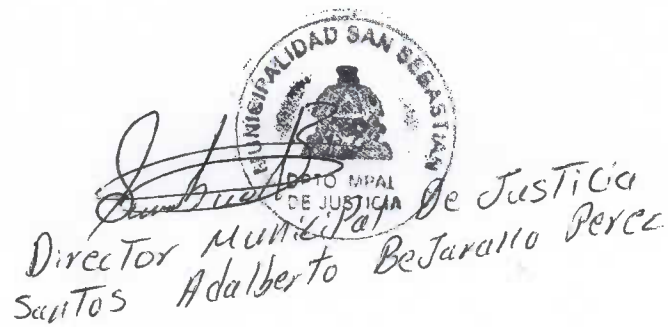 MUNICIPALIDAD SAN SEBASTIAN
DPTO MPAL
DE JUSTICIA
Director Municipal De JusTiCia
SanTos Adalberto BeJarano Perez